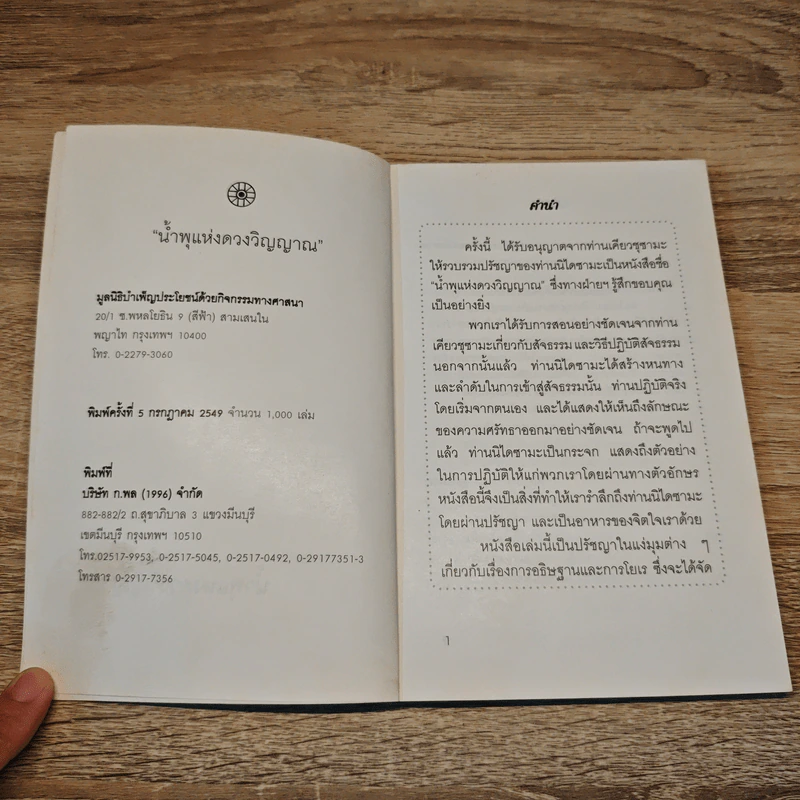 "น้ำพุแห่งดวงวิญญาณ"
มูลนิธิบำเพ็ญประโยชน์ด้วยกิจกรรมทางศาสนา
20/1 ซ.พหลโยธิน 9 (สีฟ้า) สามเสนใน
พญาไท กรุงเทพฯ 10400
โทร. 0-2279-3060
พิมพ์ครั้งที่ 5 กรกฎาคม 2549 จำนวน 1,000 เล่ม
พิมพ์ที่
บริษัท ก.พล (1996) จำกัด
882-882/2 ถ.สุขาภิบาล 3 แขวงมีนบุรี
เขตมีนบุรี กรุงเทพฯ 10510
โทร.02517-9953, 0-2517-5045, 0-2517-0492, 0-29177351-3
โทรสาร 0-2917-7356
คำนำ
ครั้งนี้ ได้รับอนุญาตจากท่านเคียวซุซามะ
ให้รวบรวมปรัชญาของท่านนิไดซามะเป็นหนังสือชื่อ
"น้ำพุแห่งดวงวิญญาณ" ซึ่งทางฝ่ายฯ รู้สึกขอบคุณ
เป็นอย่างยิ่ง
พวกเราได้รับการสอนอย่างชัดเจนจากท่าน
เคียวซุซามะเกี่ยวกับสัจธรรม และวิธีปฏิบัติสัจธรรม
นอกจากนั้นแล้ว ท่านนิไดซามะได้สร้างหนทาง
และลำดับในการเข้าสู่สัจธรรมนั้น ท่านปฏิบัติจริง
โดยเริ่มจากตนเอง และได้แสดงให้เห็นถึงลักษณะ
ของความศรัทธาออกมาอย่างชัดเจน ถ้าจะพูดไป
แล้ว ท่านนิไดซามะเป็นกระจก แสดงถึงตัวอย่าง
ในการปฏิบัติให้แก่พวกเราโดยผ่านทางตัวอักษร
หนังสือนี้จึงเป็นสิ่งที่ทำให้เรารำลึกถึงท่านนิไดซามะ
โดยผ่านปรัชญา และเป็นอาหารของจิตใจเราด้วย
หนังสือเล่มนี้เป็นปรัชญาในแง่มุมต่าง ๆ
เกี่ยวกับเรื่องการอธิษฐานและการโยเร ซึ่งจะได้จัด
1